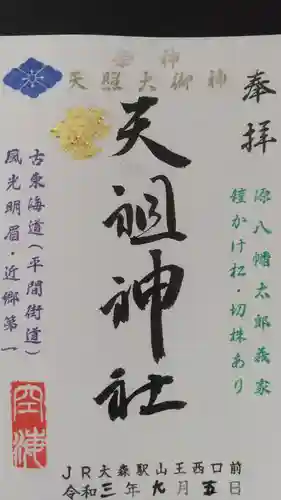 奉拝
源八幡太郎義家
鐘かけ松・切株あり
祭神
天照大御神
天祖神社
古東海道（平間街道）
風光明眉・近郷第一
JR大森駅山王西口前
令和三年九月五日